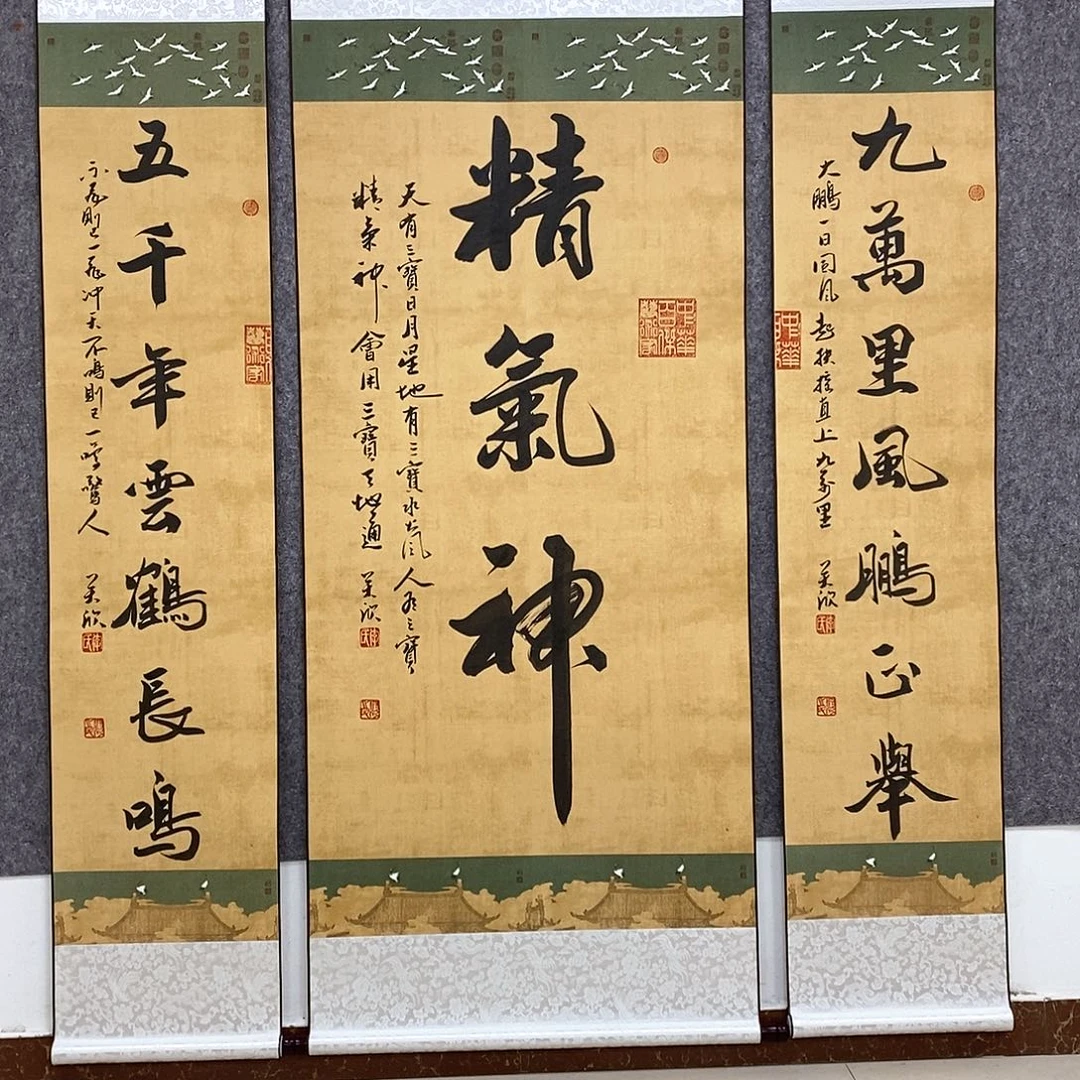 九萬里風鵬正舉
大鵬一日同風起扶摇直上九萬里
美欣
精氣神
天有三寶日月星地有三寶水火風人有三寶
精氣神會用三寶天地通
美欣
五千年雲鶴長鳴
不飛則已一飛冲天不鳴則已一鳴驚人
美欣